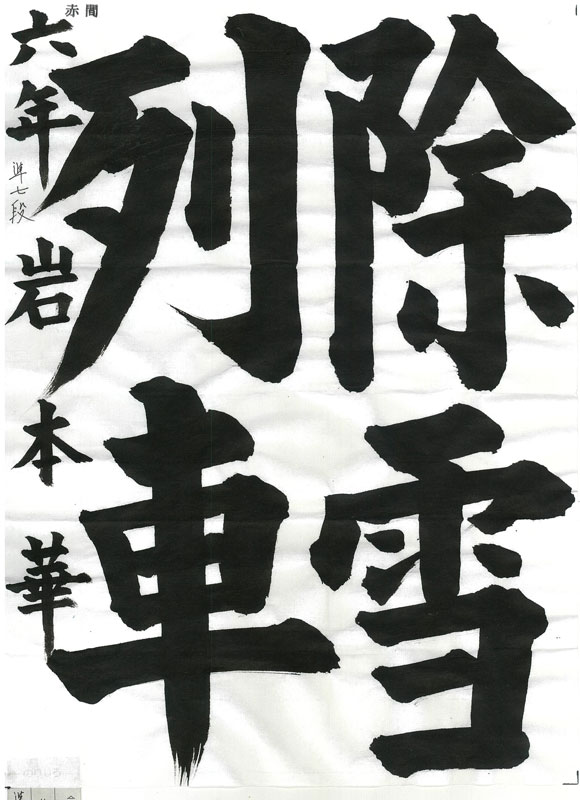 除雪
列車
六年 岩本華
準七段
赤間